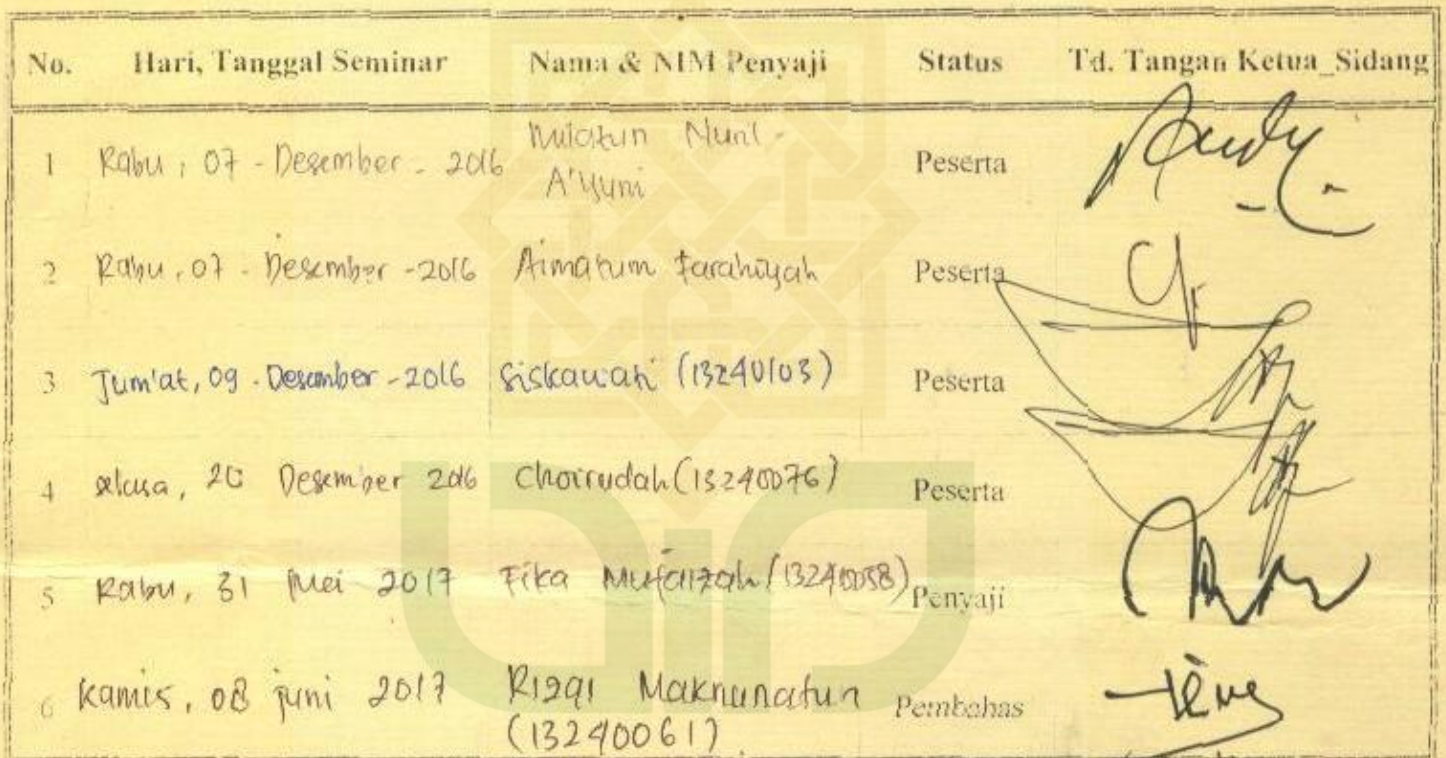 No. Hari, Tanggal Seminar Nama & NIM Penyaji Status Td. Tangan Ketua_Sidang
1 Rabu, 07 - Desember - 2016 Nuril - Peserta
A'yuni
2 Rabu, 07 - Desember - 2016 Aimatum Farahiyah Peserta
3 Jum'at, 09 - Desember - 2016 Siskawati (13240103) Peserta
4 selasa, 20 Desember 2016 Choirudah (13240076) Peserta
5 Rabu, 31 Mei 2017 Fika Mufaizah (13240058) Penyaji
6 Kamis, 08 juni 2017 Rizqi Maknunatun Pembahas
(13240061)